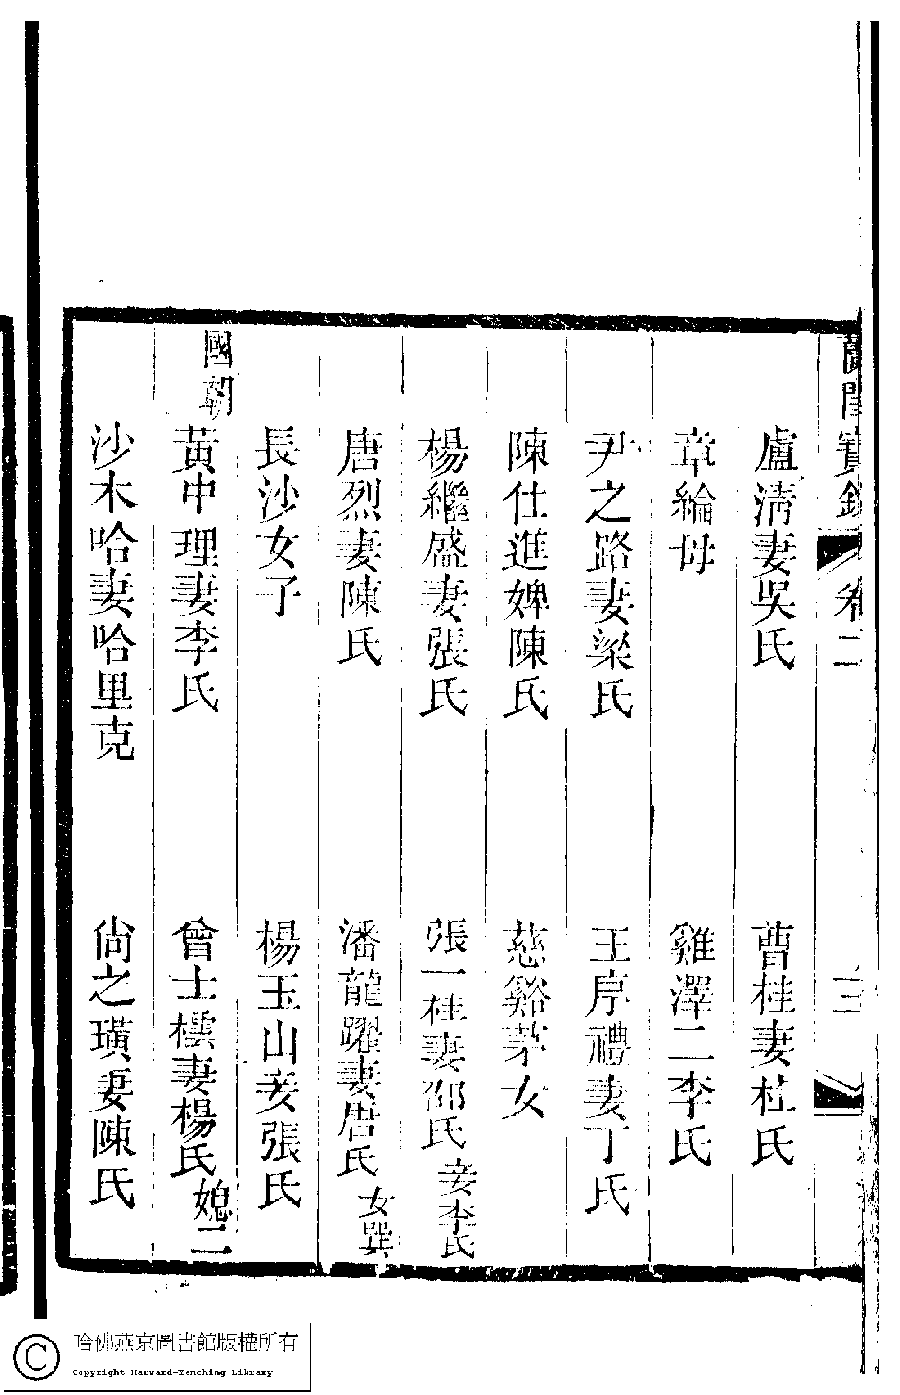 蘭閨寶錄 卷二 三
盧淸妻吳氏 曹桂妻杜氏
章綸母 雞澤二李氏
尹之路妻梁氏 王序禮妻丁氏
陳仕進婢陳氏 慈谿茅女
楊繼盛妻張氏 張一桂妻邵氏 妾李氏
唐烈妻陳氏 潘龍躍妻唐氏 女巽
長沙女子 楊玉山妾張氏
國朝
黃中理妻李氏 曾士櫄妻楊氏 媳二
沙木哈妻哈里克 尙之璜妻陳氏
哈佛燕京圖書館版權所有
Copyright Harvard-Yenching Library